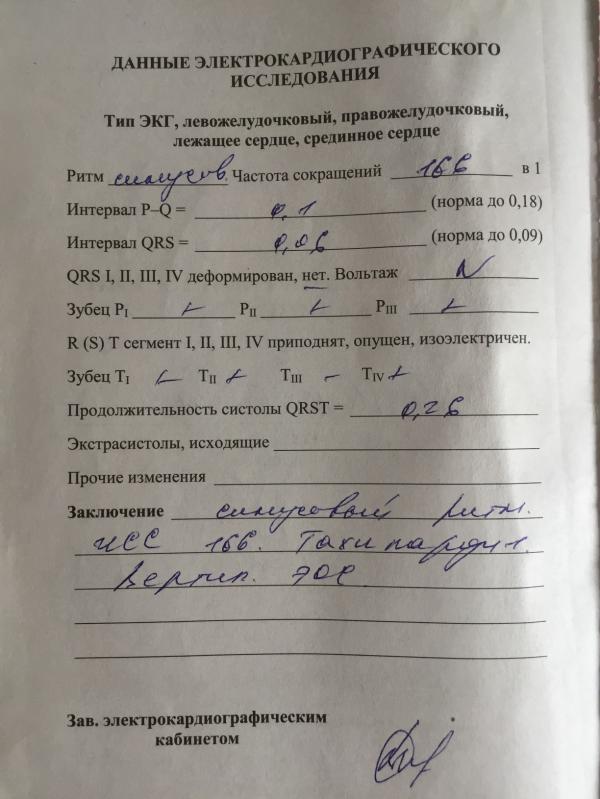 ДАННЫЕ ЭЛЕКТРОКАРДИОГРАФИЧЕСКОГО
ИССЛЕДОВАНИЯ
Тип ЭКГ, левожелудочковый, правожелудочковый,
лежащее сердце, срединное сердце
Ритм синусов. Частота сокращений 166 в 1
Интервал P–Q = 0,1 (норма до 0,18)
Интервал QRS = 0,06 (норма до 0,09)
QRS I, II, III, IV деформирован, нет. Вольтаж N
Зубец PI + PII + PIII +
R (S) T сегмент I, II, III, IV приподнят, опущен, изоэлектричен.
Зубец TI + TII + TIII - TIV +
Продолжительность систолы QRST = 0,26
Экстрасистолы, исходящие
Прочие изменения
Заключение синусовый ритм.
ЧСС 166. Тахикардия.
Вертик. ЭОС
Зав. электрокардиографическим
кабинетом